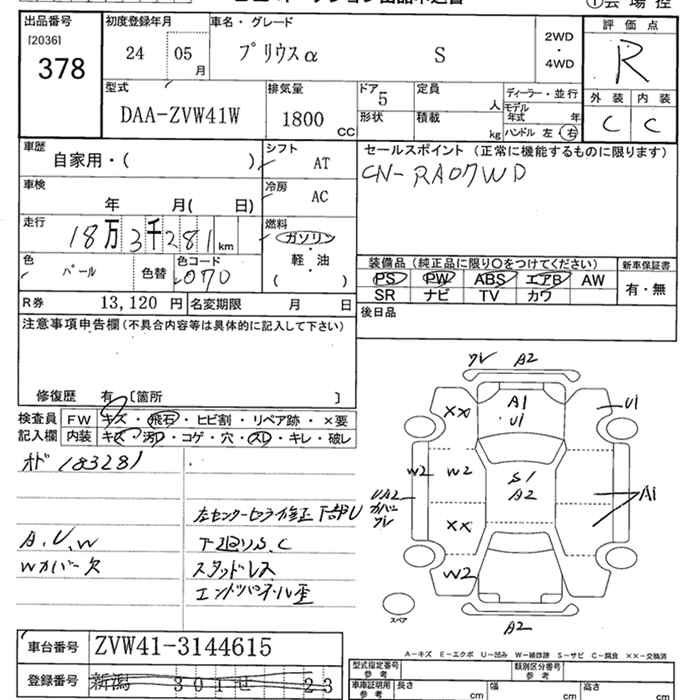 ①会場控
出品番号 初度登録年月 車名・グレード 評価点
[2036]
378
24 05 月 プリウスα S
2WD
・
4WD
R
型式 排気量 ドア 定員 ディーラー・並行 外装 内装
DAA-ZVW41W 1800 CC 5 人 モデル年式 年 C C
形状 積載 kg ハンドル 左 右
車歴 シフト セールスポイント (正常に機能するものに限ります)
自家用・( ) AT CN-RA07WD
車検 冷房
年 月( 日) AC
走行 燃料
18万3千281km ガソリン
・
色 色コード 軽・油
パール 色替 070 ( )
装備品 (純正品に限り〇をつけてください) 新車保証書
PS PW ABS エアB AW 有・無
SR ナビ TV カワ
R券 13,120 円 名変期限 月 日 後日品
注意事項申告欄 (不具合内容等は具体的に記入して下さい)
修復歴 有 [箇所 ]
検査員 FW キズ・飛石・ヒビ割・リペア跡・×要
記入欄 内装 キズ・汚れ・コゲ・穴・スレ・キレ・破レ
オド 183281
左センターピラー修正 下部U
A、U、W 下廻りS、C
Wカバー欠 スタッドレス
エンドパネル歪
ワレ A2
A1
U1
XX U1
W2 W2 S1
A2
UA2
カバー
ワレ
A1
XX
W2
スペア
A2
A-キズ E-エクボ U-凹み W-補修跡 S-サビ C-腐食 ××-交換済
車台番号 ZVW41-3144615
登録番号 新潟 301 せ 23
型式指定番号 参考 類別区分番号 参考
車庫証明用 参考 長さ cm 幅 cm 高さ cm